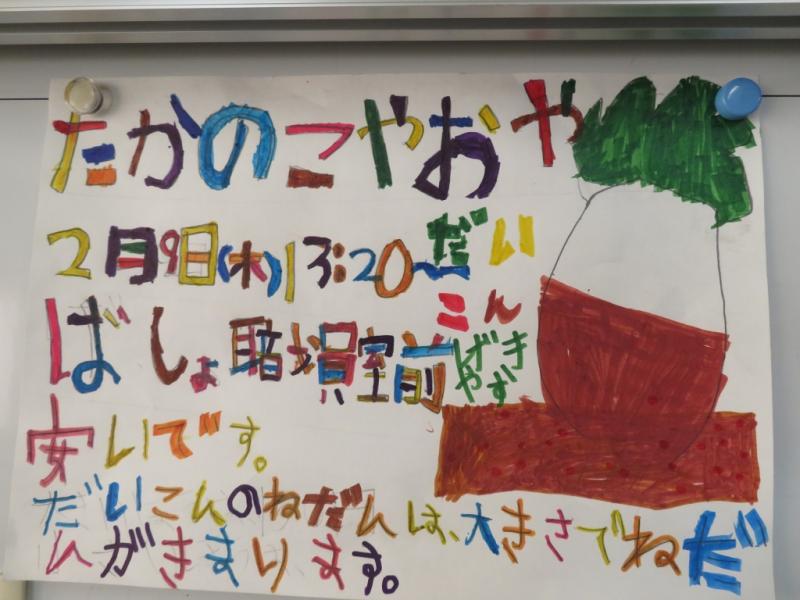 たかのこやおや
2月9日(木)13:20〜
ばしょ職員室前
だい
こん
げき
やず
安いです。
だいこんのねだんは、大きさでねだ
んがきまります。